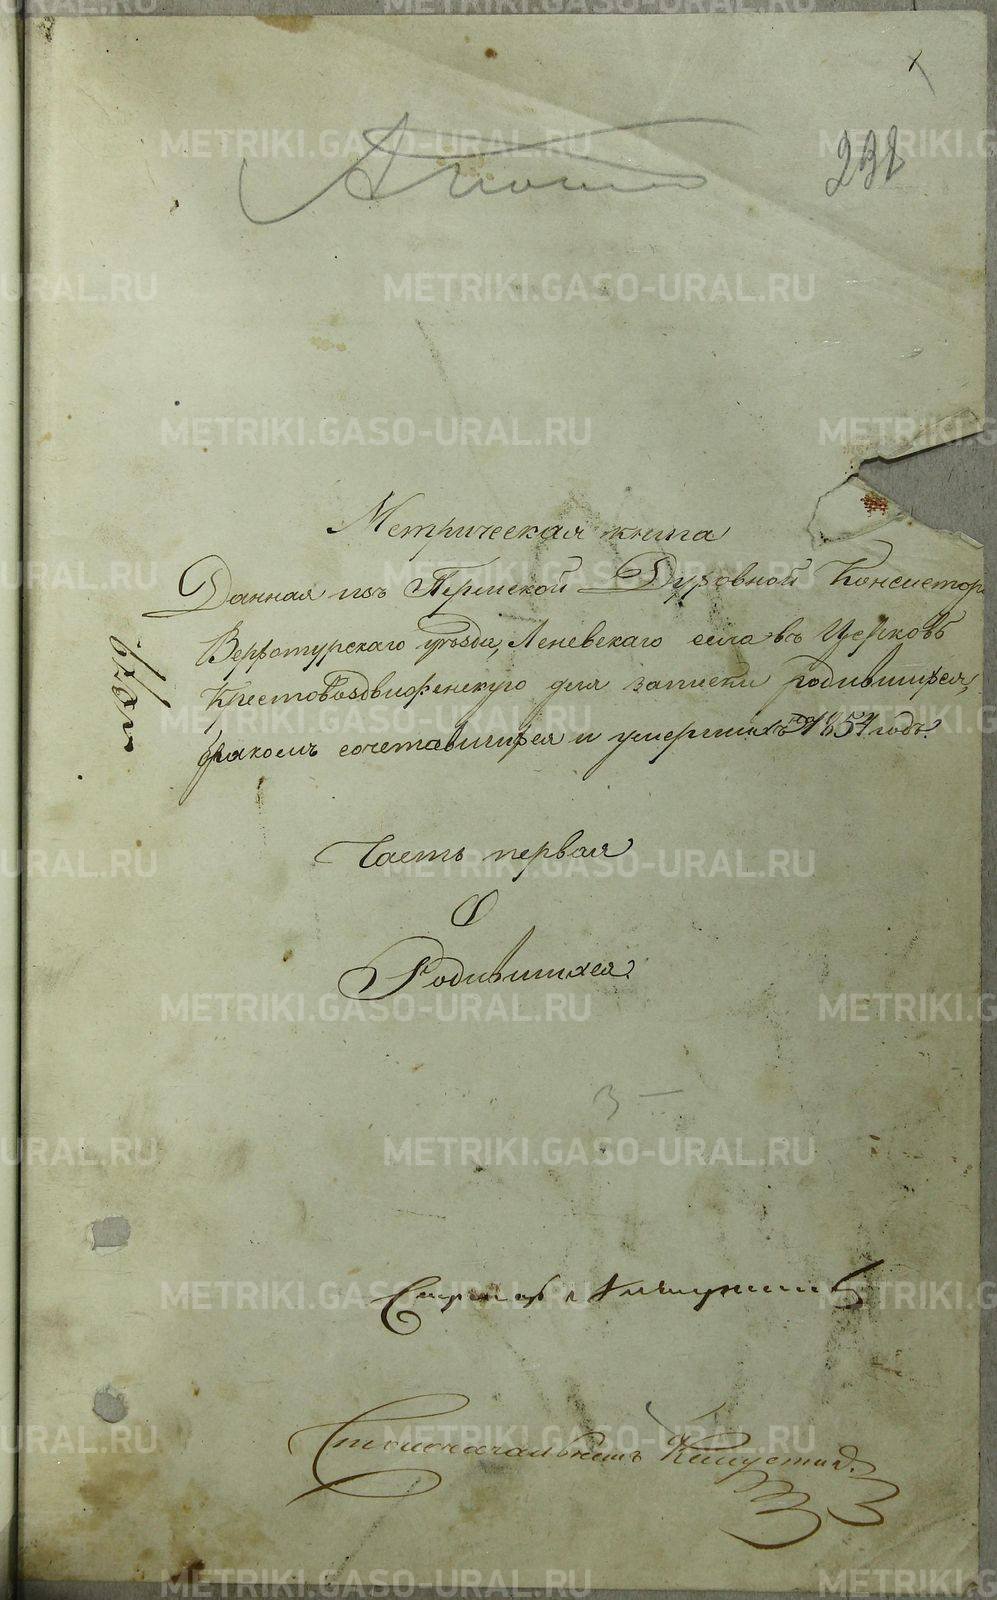 232
Метрическая книга
Данная изъ Пермской Духовной Консистор
Верхотурскаго уѣзда, Леневскаго села въ Церковь
Крестовоздвиженскую для записки родившихся,
бракомъ сочетавшихся и умершихъ на 1854 годъ.
Часть первая
О
Родившихся.
Столоначальникъ Капустин
METRIKI.GASO-URAL.RU